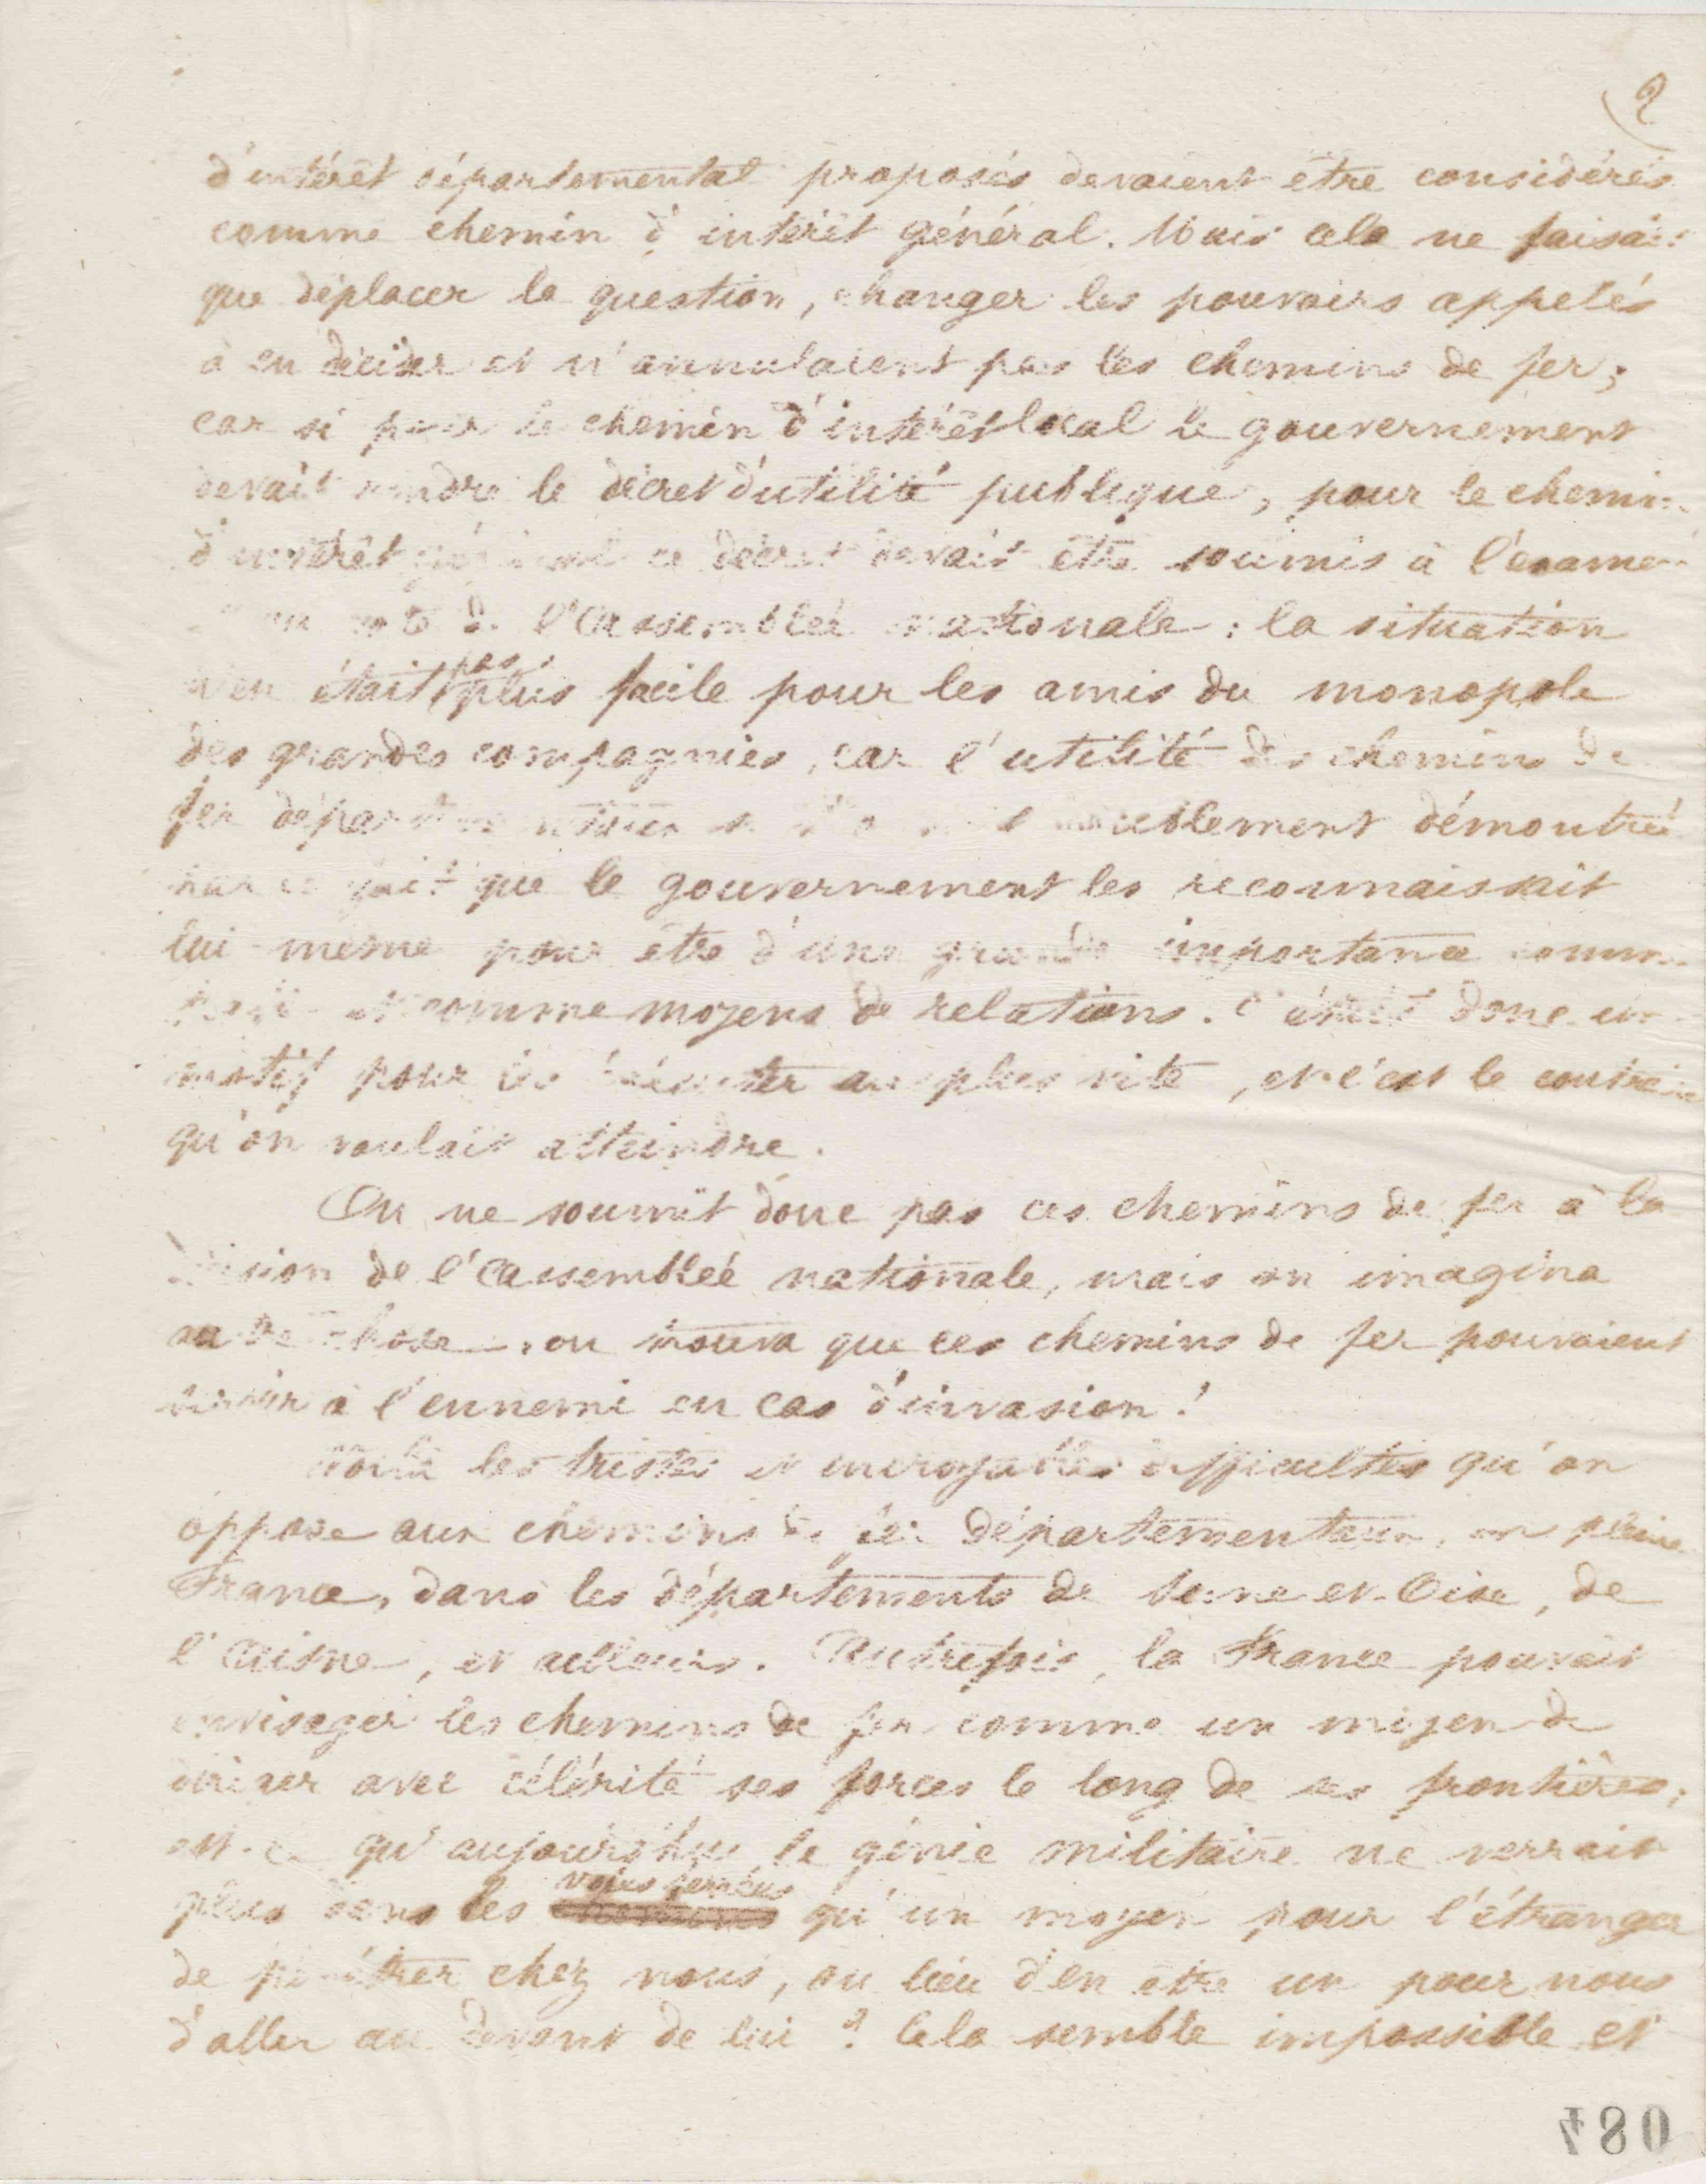 2
d'intérêt départemental proposés devaient être considérés
comme chemin d'intérêt général. Mais cela ne faisait
que déplacer la question, changer les pouvoirs appelés
à en décider et n'annulaient pas les chemins de fer;
car si pour le chemin d'intérêt local le gouvernement
devait rendre le décret d'utilité publique, pour le chemin
d'intérêt général ce décret devait être soumis à l'examen
de l'Assemblée nationale : la situation
n'en était pas plus facile pour les amis du monopole
des grandes compagnies, car l'utilité des chemins de
fer départementaux démontrée
par ce fait que le gouvernement les reconnaissait
lui-même pour être d'une grande importance
et comme moyens de relations. C'était donc un
motif pour les exécuter au plus vite, et c'est le contraire
qu'on voulait atteindre.
On ne soumit donc pas ces chemins de fer à la
décision de l'Assemblée nationale, mais on imagina
autre chose, on trouva que ces chemins de fer pouvaient
servir à l'ennemi en cas d'invasion !
Voilà les tristes et incroyables difficultés qu'on
oppose aux chemins de fer départementaux, en pleine
France, dans les départements de Seine-et-Oise, de
l'Aisne, et ailleurs. Autrefois, la France pouvait
envisager les chemins de fer comme un moyen de
diriger avec célérité ses forces le long de ses frontières;
est-ce qu'aujourd'hui le génie militaire ne verrait
plus dans les voies ferrées qu'un moyen pour l'étranger
de pénétrer chez nous, au lieu d'en être un pour nous
d'aller au devant de lui ? Cela semble impossible et
084